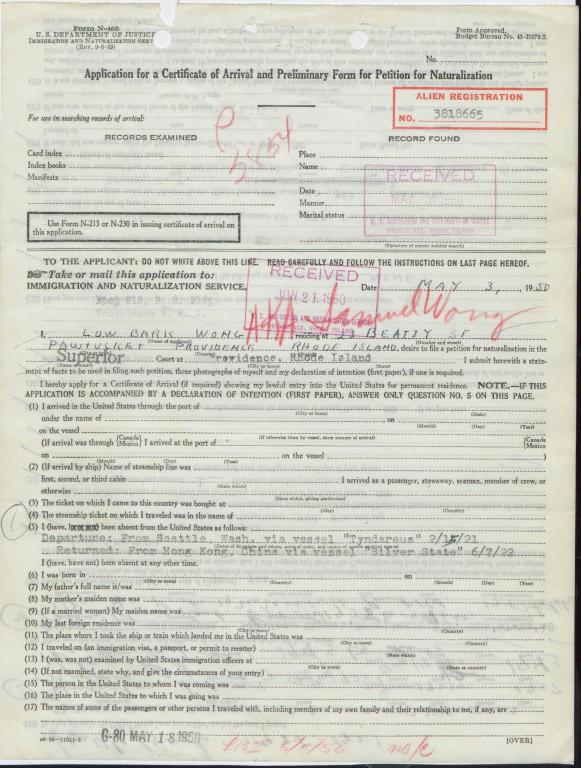 Form N-400
U. S. DEPARTMENT OF JUSTICE
IMMIGRATION AND NATURALIZATION SERV
(Rev. 9-6-49)
Form Approved.
Budget Bureau No. 43-R079.2.
No.
Application for a Certificate of Arrival and Preliminary Form for Petition for Naturalization
ALIEN REGISTRATION
NO. 3818665
For use in searching records of arrival:
RECORDS EXAMINED
RECORD FOUND
Card index
Index books
Manifests
Place
Name
Date
Manner
Marital status
(Signature of person making search)
RECEIVED
PROVIDENCE, RHODE ISLAND
Use Form N-215 or N-230 in issuing certificate of arrival on
this application.
TO THE APPLICANT: DO NOT WRITE ABOVE THIS LINE. READ CAREFULLY AND FOLLOW THE INSTRUCTIONS ON LAST PAGE HEREOF.
Take or mail this application to:
IMMIGRATION AND NATURALIZATION SERVICE,
RECEIVED
JUN 21 1950
PROVIDENCE, RHODE ISLAND
Date MAY 3, 1950
AKA Samuel Wong
I, LOW BARK WONG residing at 23 BEATTY ST
(Name of applicant) (Number and street)
PAWTUCKET PROVIDENCE RHODE ISLAND, desire to file a petition for naturalization in the
Superior Court at Providence, Rhode Island I submit herewith a state-
(Name of court) (City or town) (State)
ment of facts to be used in filing such petition, three photographs of myself and my declaration of intention (first paper), if one is required.
I hereby apply for a Certificate of Arrival (if required) showing my lawful entry into the United States for permanent residence. NOTE.—IF THIS
APPLICATION IS ACCOMPANIED BY A DECLARATION OF INTENTION (FIRST PAPER), ANSWER ONLY QUESTION NO. 5 ON THIS PAGE.
(1) I arrived in the United States through the port of
(City or town) (State)
under the name of on
(Month) (Day) (Year)
on the vessel
(If otherwise than by vessel, show manner of arrival)
(If arrival was through {Canada Mexico} I arrived at the port of {Canada Mexico
on on the vessel )
(Month) (Day) (Year)
(2) (If arrival by ship) Name of steamship line was
first, second, or third cabin I arrived as a passenger, stowaway, seaman, member of crew, or
(State which)
otherwise
(State which, giving particulars)
(3) The ticket on which I came to this country was bought at
(City or town) (Country)
(4) The steamship ticket on which I traveled was in the name of
(5) I (have, have not) been absent from the United States as follows:
Departure: From Seattle, Wash. via vessel "Tyndareus" 2/15/21
Returned: From Hong Kong, China via vessel "Silver State" 6/7/22
I (have, have not) been absent at any other time.
(6) I was born in on
(City or town) (Country) (Month) (Day) (Year)
(7) My father's full name is/was
(8) My mother's maiden name was
(9) (If a married woman) My maiden name was
(10) My last foreign residence was
(City or town) (Country)
(11) The place where I took the ship or train which landed me in the United States was
(City or town) (Country)
(12) I traveled on (an immigration visa, a passport, or permit to reenter)
(State which)
(13) I (was, was not) examined by United States immigration officers at
(City or town) (State or country)
(14) (If not examined, state why, and give the circumstances of your entry)
(15) The person in the United States to whom I was coming was
(16) The place in the United States to which I was going was
(17) The names of some of the passengers or other persons I traveled with, including members of my own family and their relationship to me, if any, are
G-80 MAY 18 1950
[OVER]